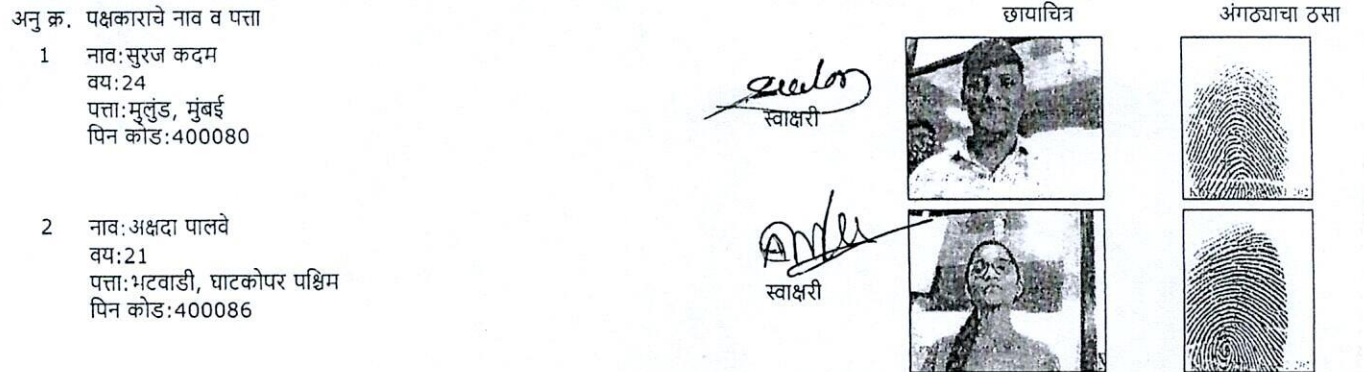 अनु क्र. पक्षकाराचे नाव व पत्ता छायाचित्र अंगठ्याचा ठसा
1 नाव:सुरज कदम
वय:24
पत्ता:मुलुंड, मुंबई
पिन कोड:400080
स्वाक्षरी
2 नाव:अक्षदा पालवे
वय:21
पत्ता:भटवाडी, घाटकोपर पश्चिम
पिन कोड:400086
स्वाक्षरी